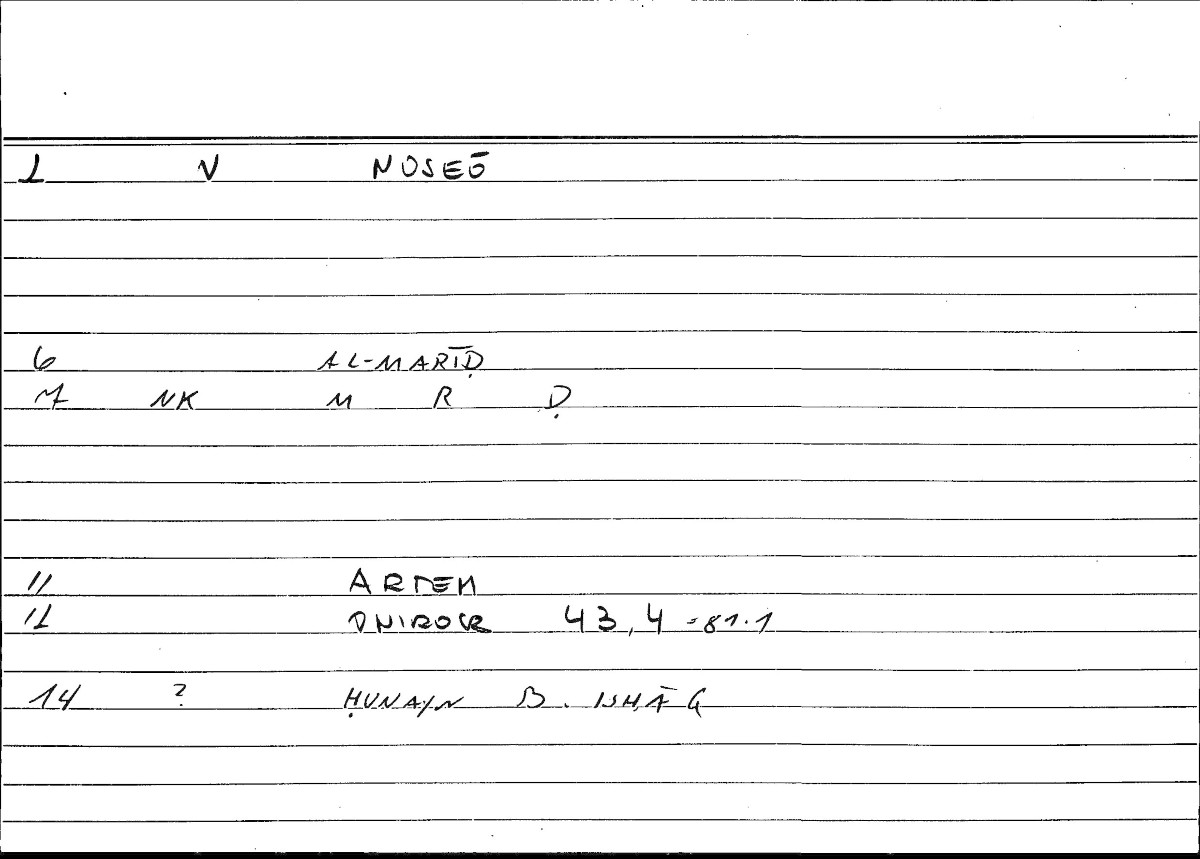 1 V NOSEŌ
6 AL-MARĪḌ
7 NK M R Ḍ
11 ARTEM
12 ONIROCR 43,4 = 81.1
14 ? ḤUNAYN B. ISḤĀQ